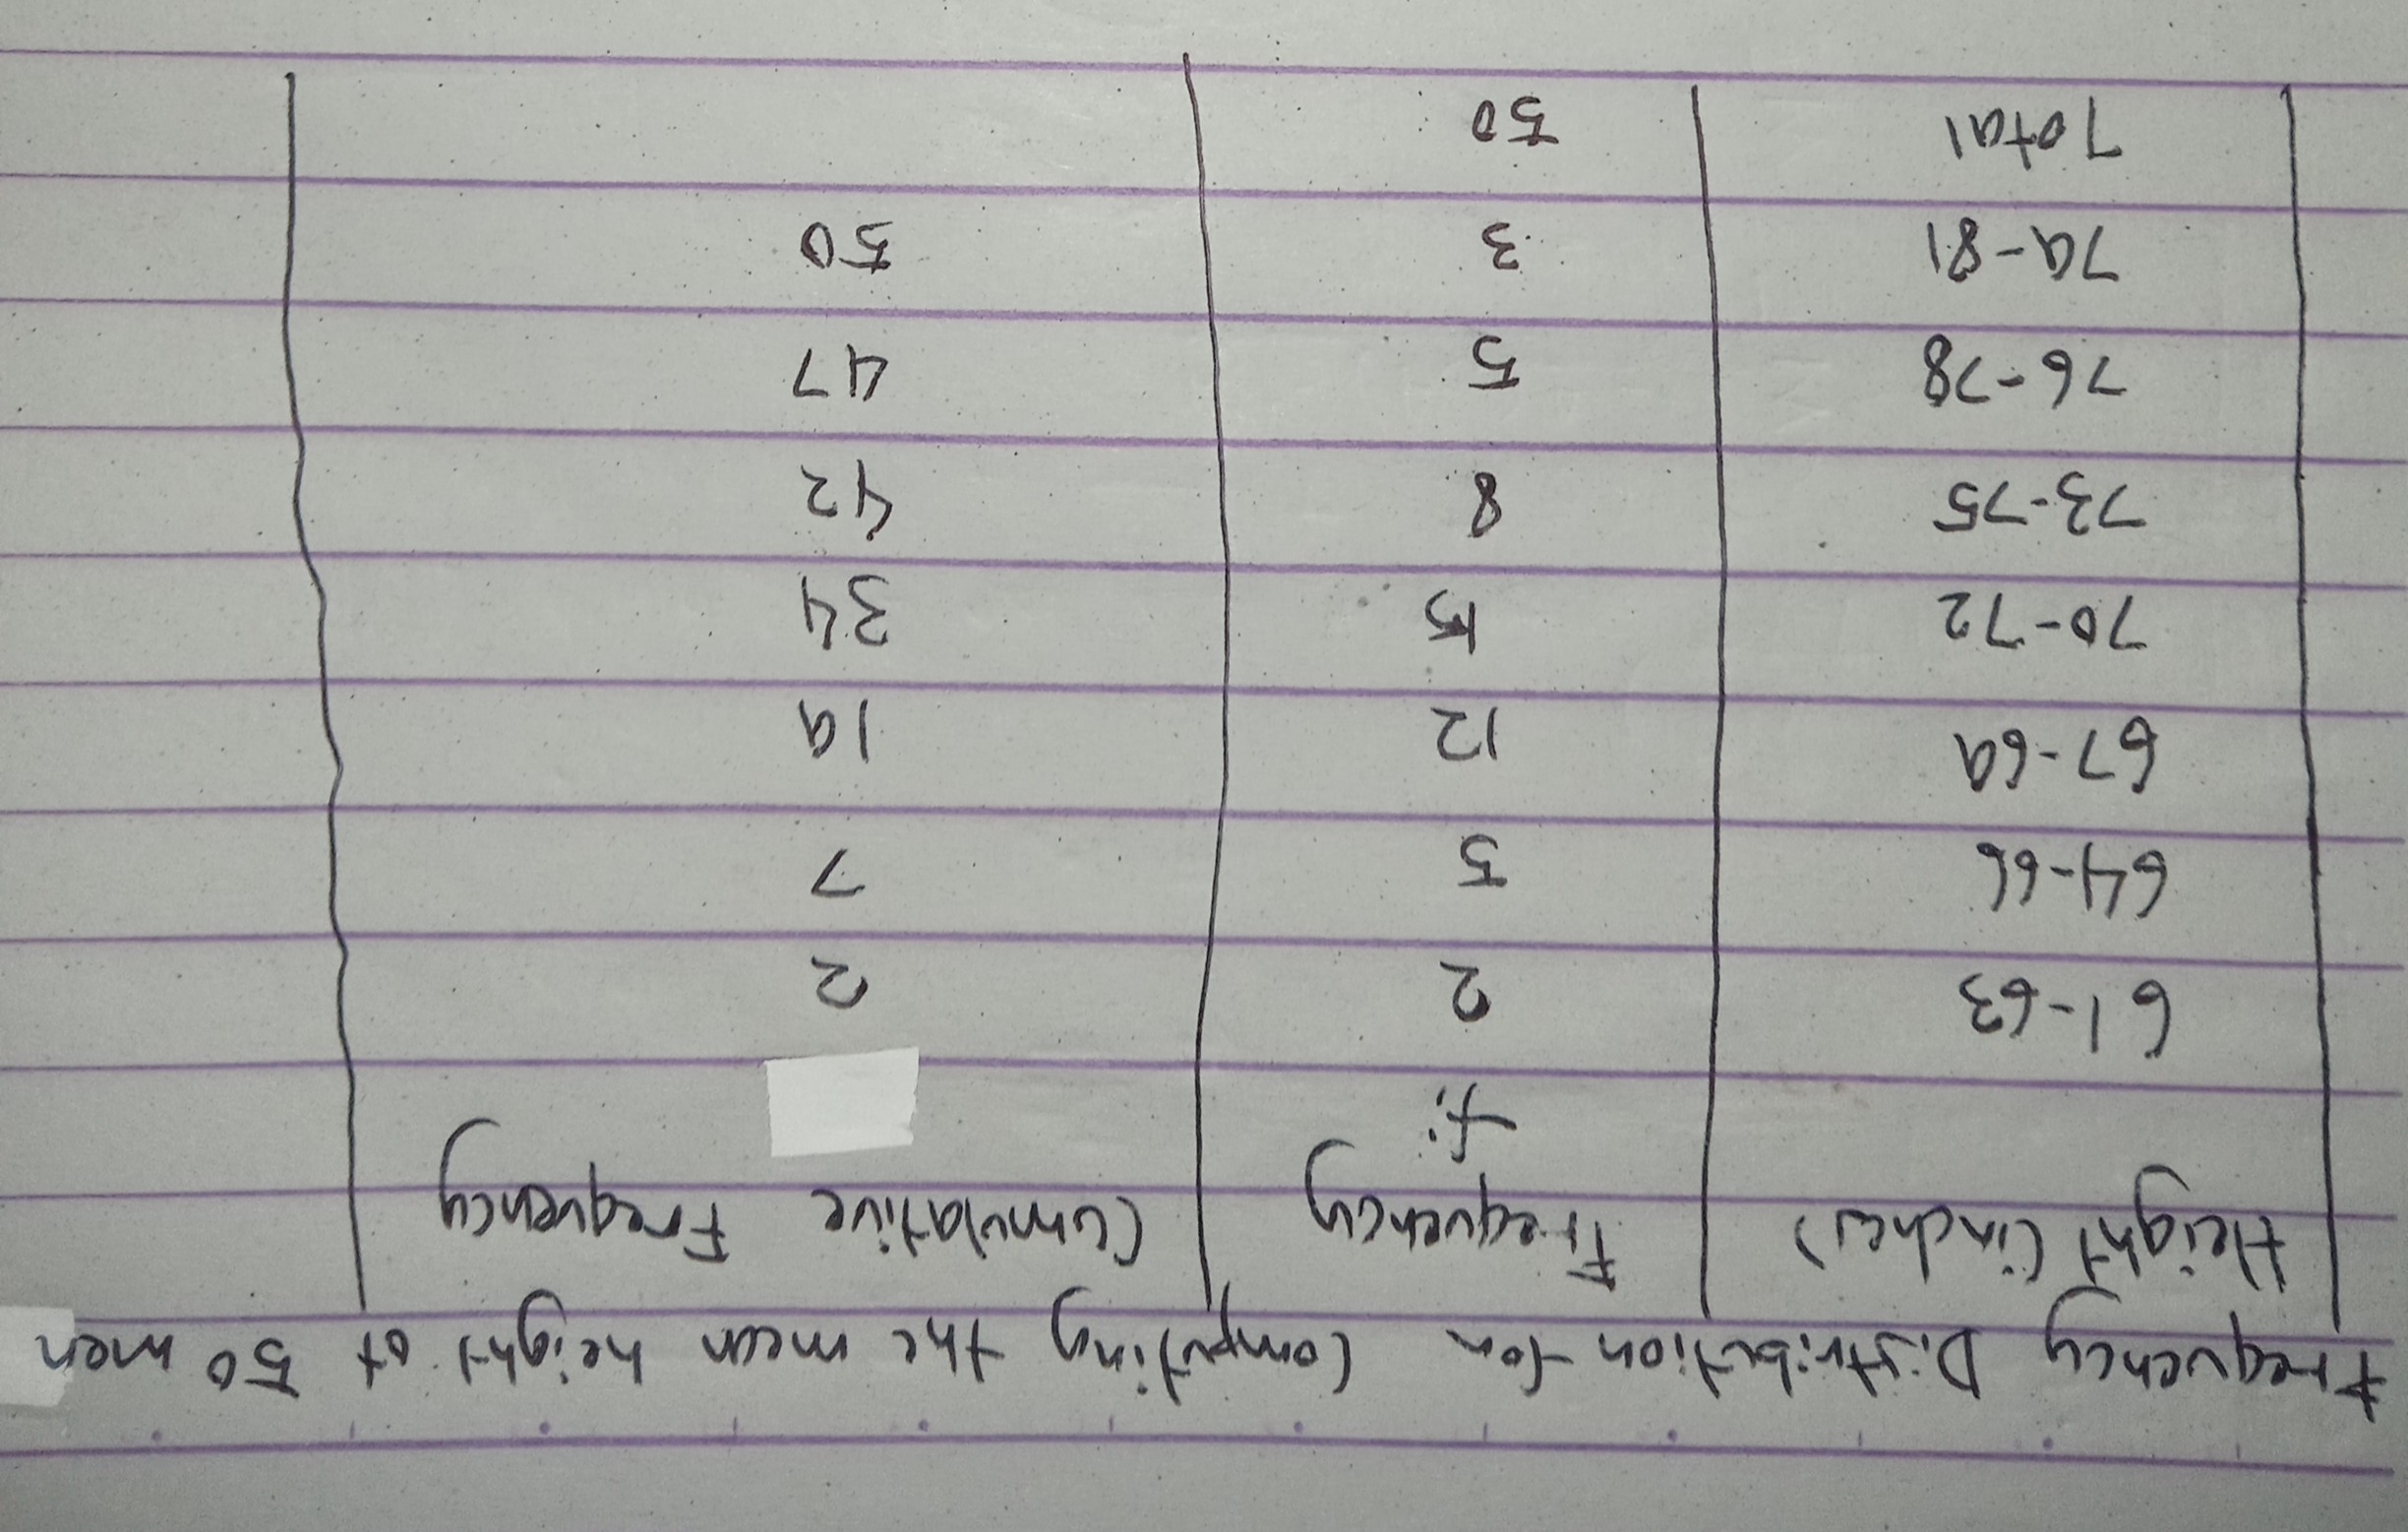 Frequency Distribution for Computing the mean height of 50 men
Height (inches) Frequency Cumulative Frequency
fi
61-63 2 2
64-66 5 7
67-69 12 19
70-72 15 34
73-75 8 42
76-78 5 47
79-81 3 50
Total 50